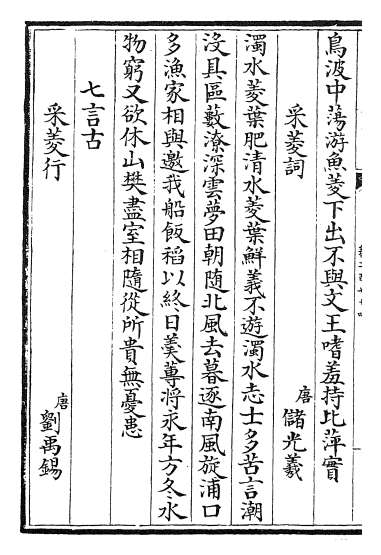 鳥波中蕩游魚菱下出不與文王嗜羞持比萍實
采菱詞　唐　儲光羲
濁水菱葉肥清水菱葉鮮義不遊濁水志士多苦言潮
沒具區藪潦深雲夢田朝隨北風去暮逐南風旋浦口
多漁家相與邀我船飯稻以終日羮蓴將永年方冬水
物窮又欲休山樊盡室相隨從所貴無憂患
七言古
采菱行　唐　劉禹錫